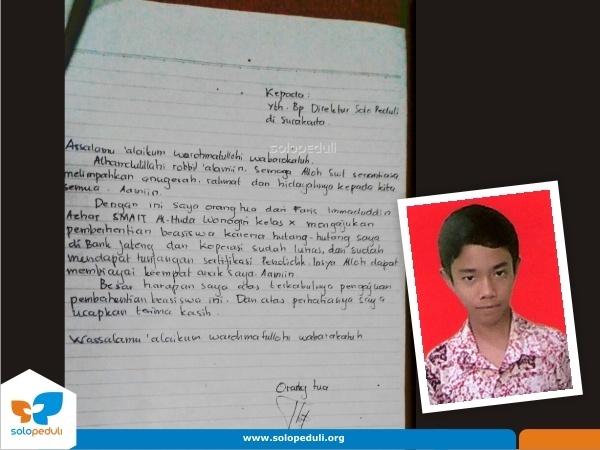 Kepada :
Yth. Bp Direktur Solo Peduli
di Surakarta.
solopeduli
Assalamu 'alaikum warohmatullohi wabarokatuh.
Alhamdulillahi robbil 'alamiin, semoga Alloh Swt senantiasa
melimpahkan anugerah, rahmat dan hidayahnya kepada kita
semua. Aamiin.
Dengan ini saya orang tua dari Faris Immaduddin
Azhar SMAIT Al-Huda Wonogiri kelas X mengajukan
pemberhentian beasiswa karena hutang-hutang saya
di Bank Jateng dan koperasi sudah lunas, dan sudah
mendapat tunjangan sertifikasi Pendidik. Insya Alloh dapat
membiayai keempat anak saya. Aamiin
Besar harapan saya atas terkabulnya pengajuan
pemberhentian beasiswa ini. Dan atas perhatiannya saya
ucapkan terima kasih.
Wassalamu 'alaikum warohmatullohi wabarokatuh
Orang tua
solopeduli
www.solopeduli.org